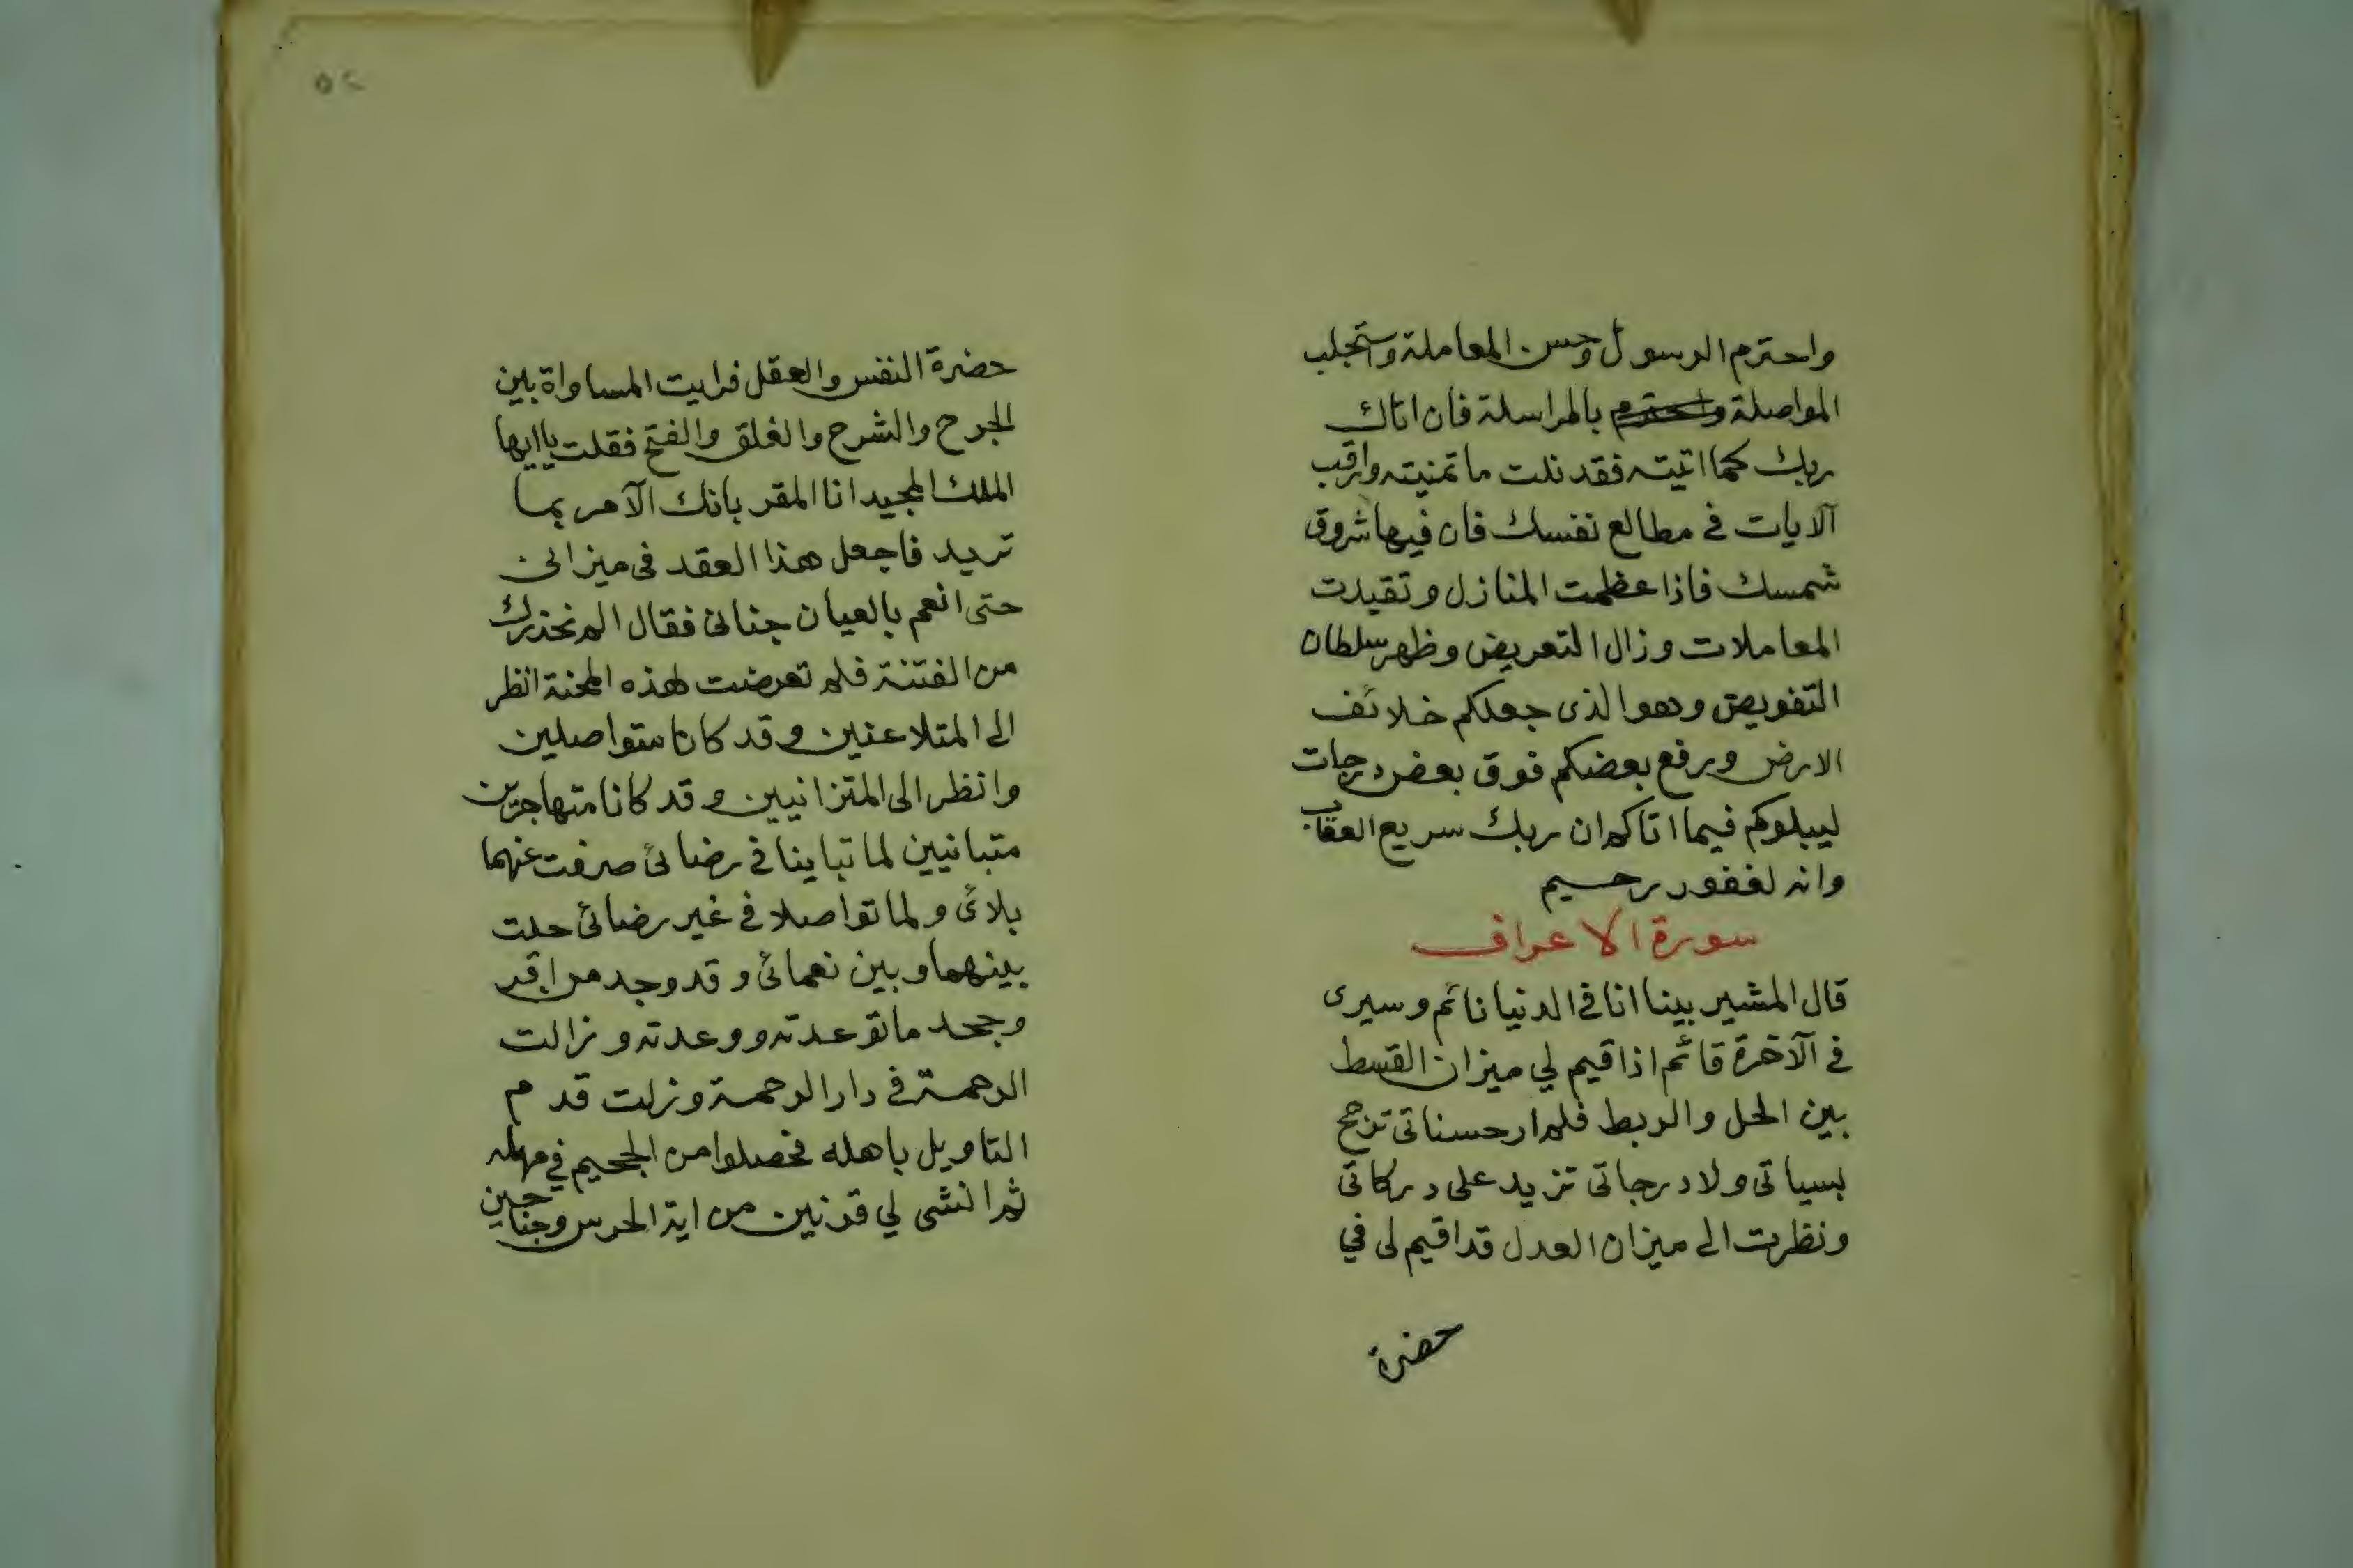 واحترم الرسول وحسن المعاملة وستجلب
المواصلة واحترم بالمراسلة فان اتاك
ربك كما اتيته فقد نلت ما تمنيته وارقب
آلايات في مطالع نفسك فان فيها شروق
شمسك فاذا عظمت المنازل وتقيدت
المعاملات وزال التعريض وظهر سلطان
التفويض وهو الذى جعلكم خلائف
الارض ورفع بعضكم فوق بعض درجات
ليبلوكم فيما اتاكم ان ربك سريع العقاب
وانه لغفور رحيم
سورة الاعراف
قال المشير بينا انا في الدنيا نائم وسيرى
في الآخرة قائم اذا قيم لي ميزان القسط
بين الحل والربط فلم ار حسناتى ترجح
بسياتى ولا درجاتى تزيد على دركاتى
ونظرت الى ميزان العدل قد اقيم لى في
حضرة
٥٢
حضرة النفس والعقل فرايت المساواة بين
الجرح والشرح والغلق والفتح فقلت ياايها
الملك المجيد انا المقر بانك الآمر بما
تريد فاجعل هذا العقد فى ميزانى
حتى انعم بالعيان جنانى فقال الم نحذرك
من الفتنة فلم تعرضت لهذه المحنة انظر
الى المتلاعنين وقد كانا متواصلين
وانظر الى المتزانيين وقد كانا متهاجرين
متبانيين لما تباينا في رضائى صرفت عنهما
بلائى ولما تواصلا في غير رضائى حلت
بينهما وبين نعمائى وقد وجد من اقر
وجحد ما توعدته ووعدته ونزالت
الرحمة في دار الرحمة ونزلت قدم
التاويل باهله فحصلوا من الجحيم في مهله
ثم انشى لي قرنين من اية الحرس وجناحين